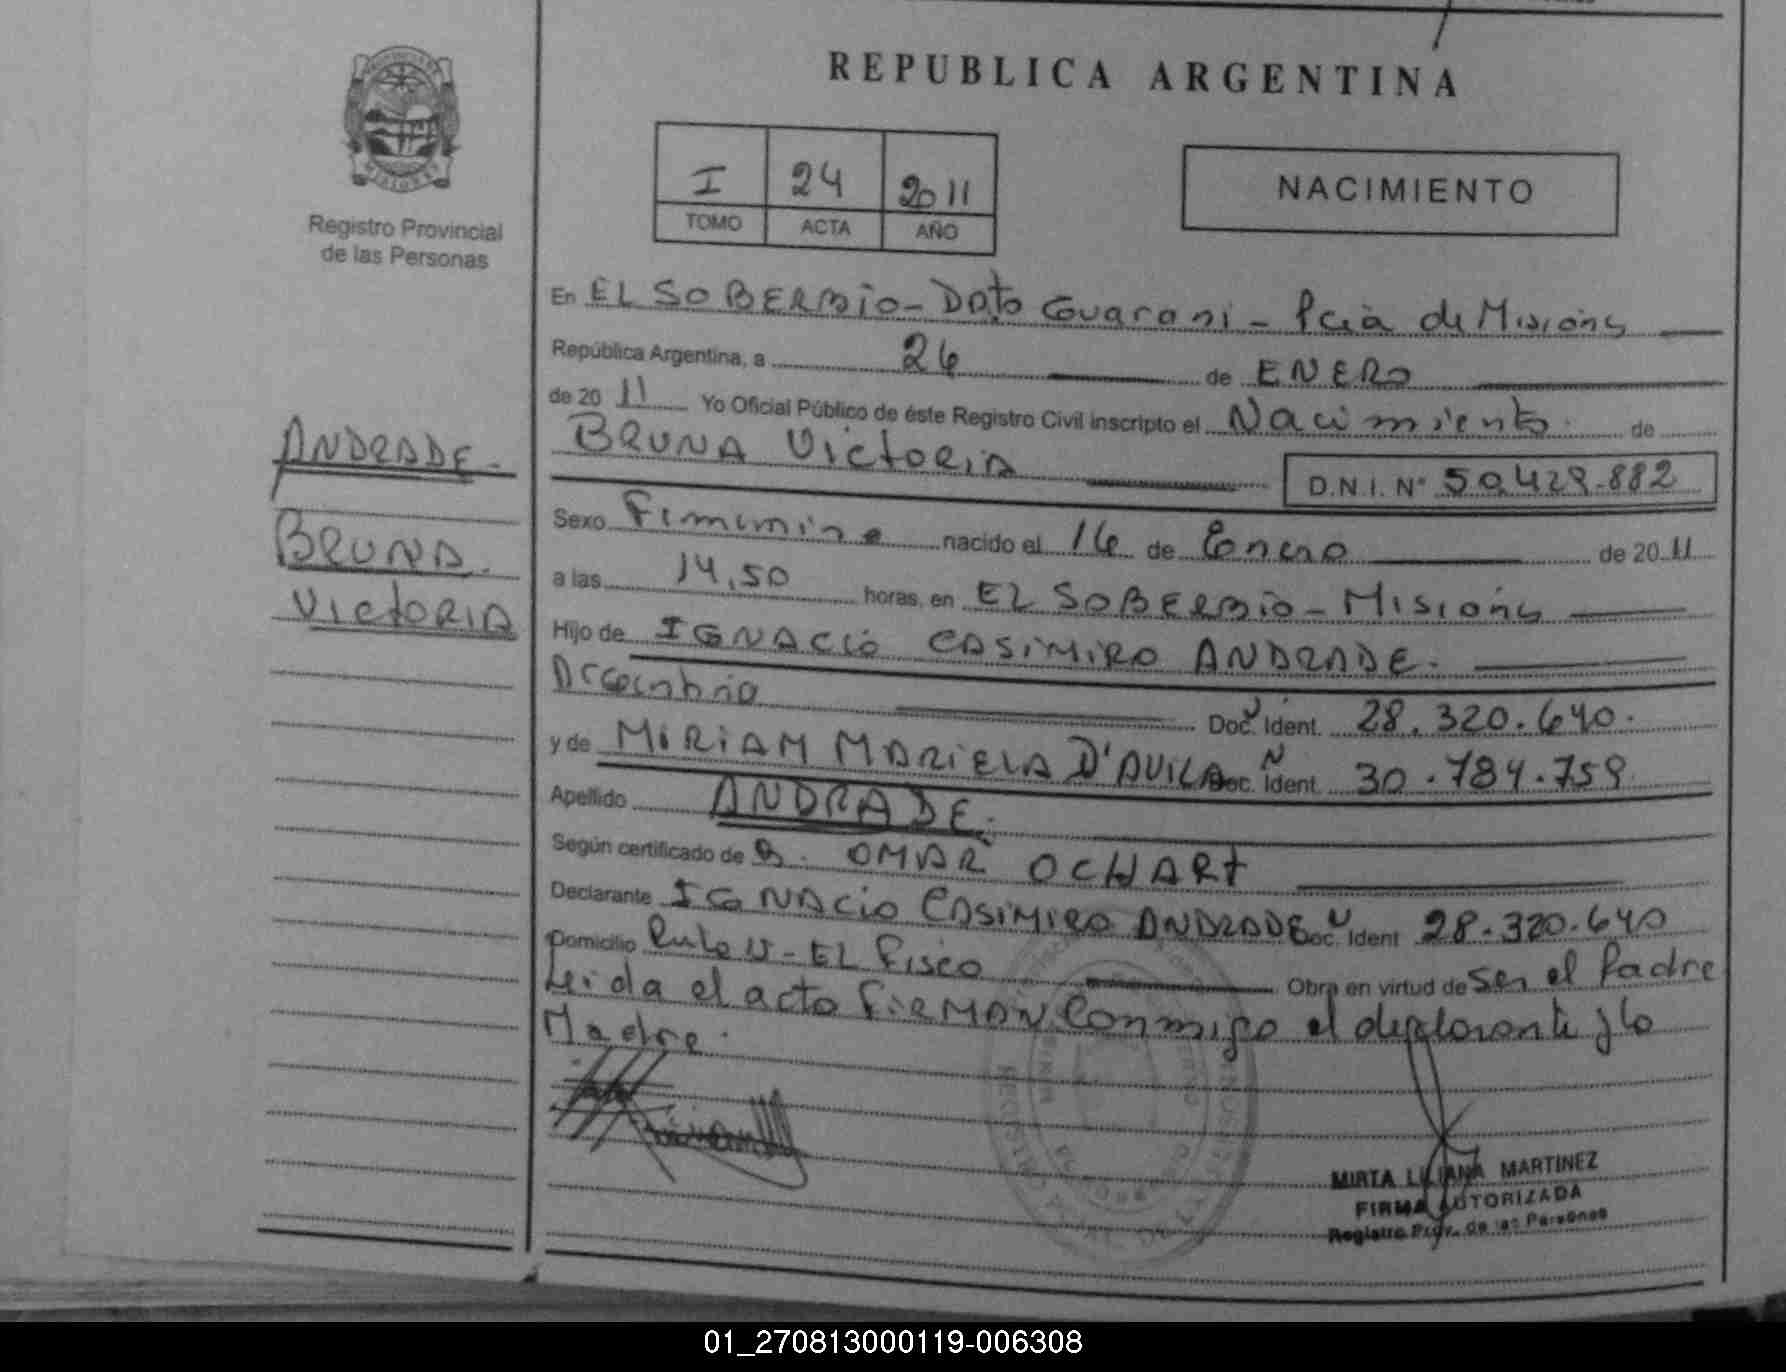 REPUBLICA ARGENTINA
I 24 2011
TOMO ACTA AÑO
NACIMIENTO
Registro Provincial
de las Personas
ANDRADE.
BRUNA.
VICTORIA
En EL SOBERBIO - Dpto Guarani - Pcia de Misiones
República Argentina, a 26 de ENERO
de 2011 Yo Oficial Público de éste Registro Civil inscripto el Nacimiento de
BRUNA VICTORIA D.N.I. Nº 50.429.882
Sexo Femenino nacido el 16 de Enero de 2011
a las 14,50 horas, en EL SOBERBIO - MISIONES
Hijo de IGNACIO CASIMIRO ANDRADE.
Argentino Doc. Ident. 28.320.640.
y de MIRIAM MARIELA D'AVILA Doc. Ident. 30.784.759
Apellido ANDRADE.
Según certificado de OMAR OCHART
Declarante IGNACIO CASIMIRO ANDRADE Doc. Ident 28.320.640
Domicilio EL Obra en virtud de Ser el Padre
Leida el acta FIRMAN Conmigo el declarante y la
Madre.
MIRTA LILIANA MARTINEZ
FIRMA AUTORIZADA
Registro Prov. de las Personas
01_270813000119-006308